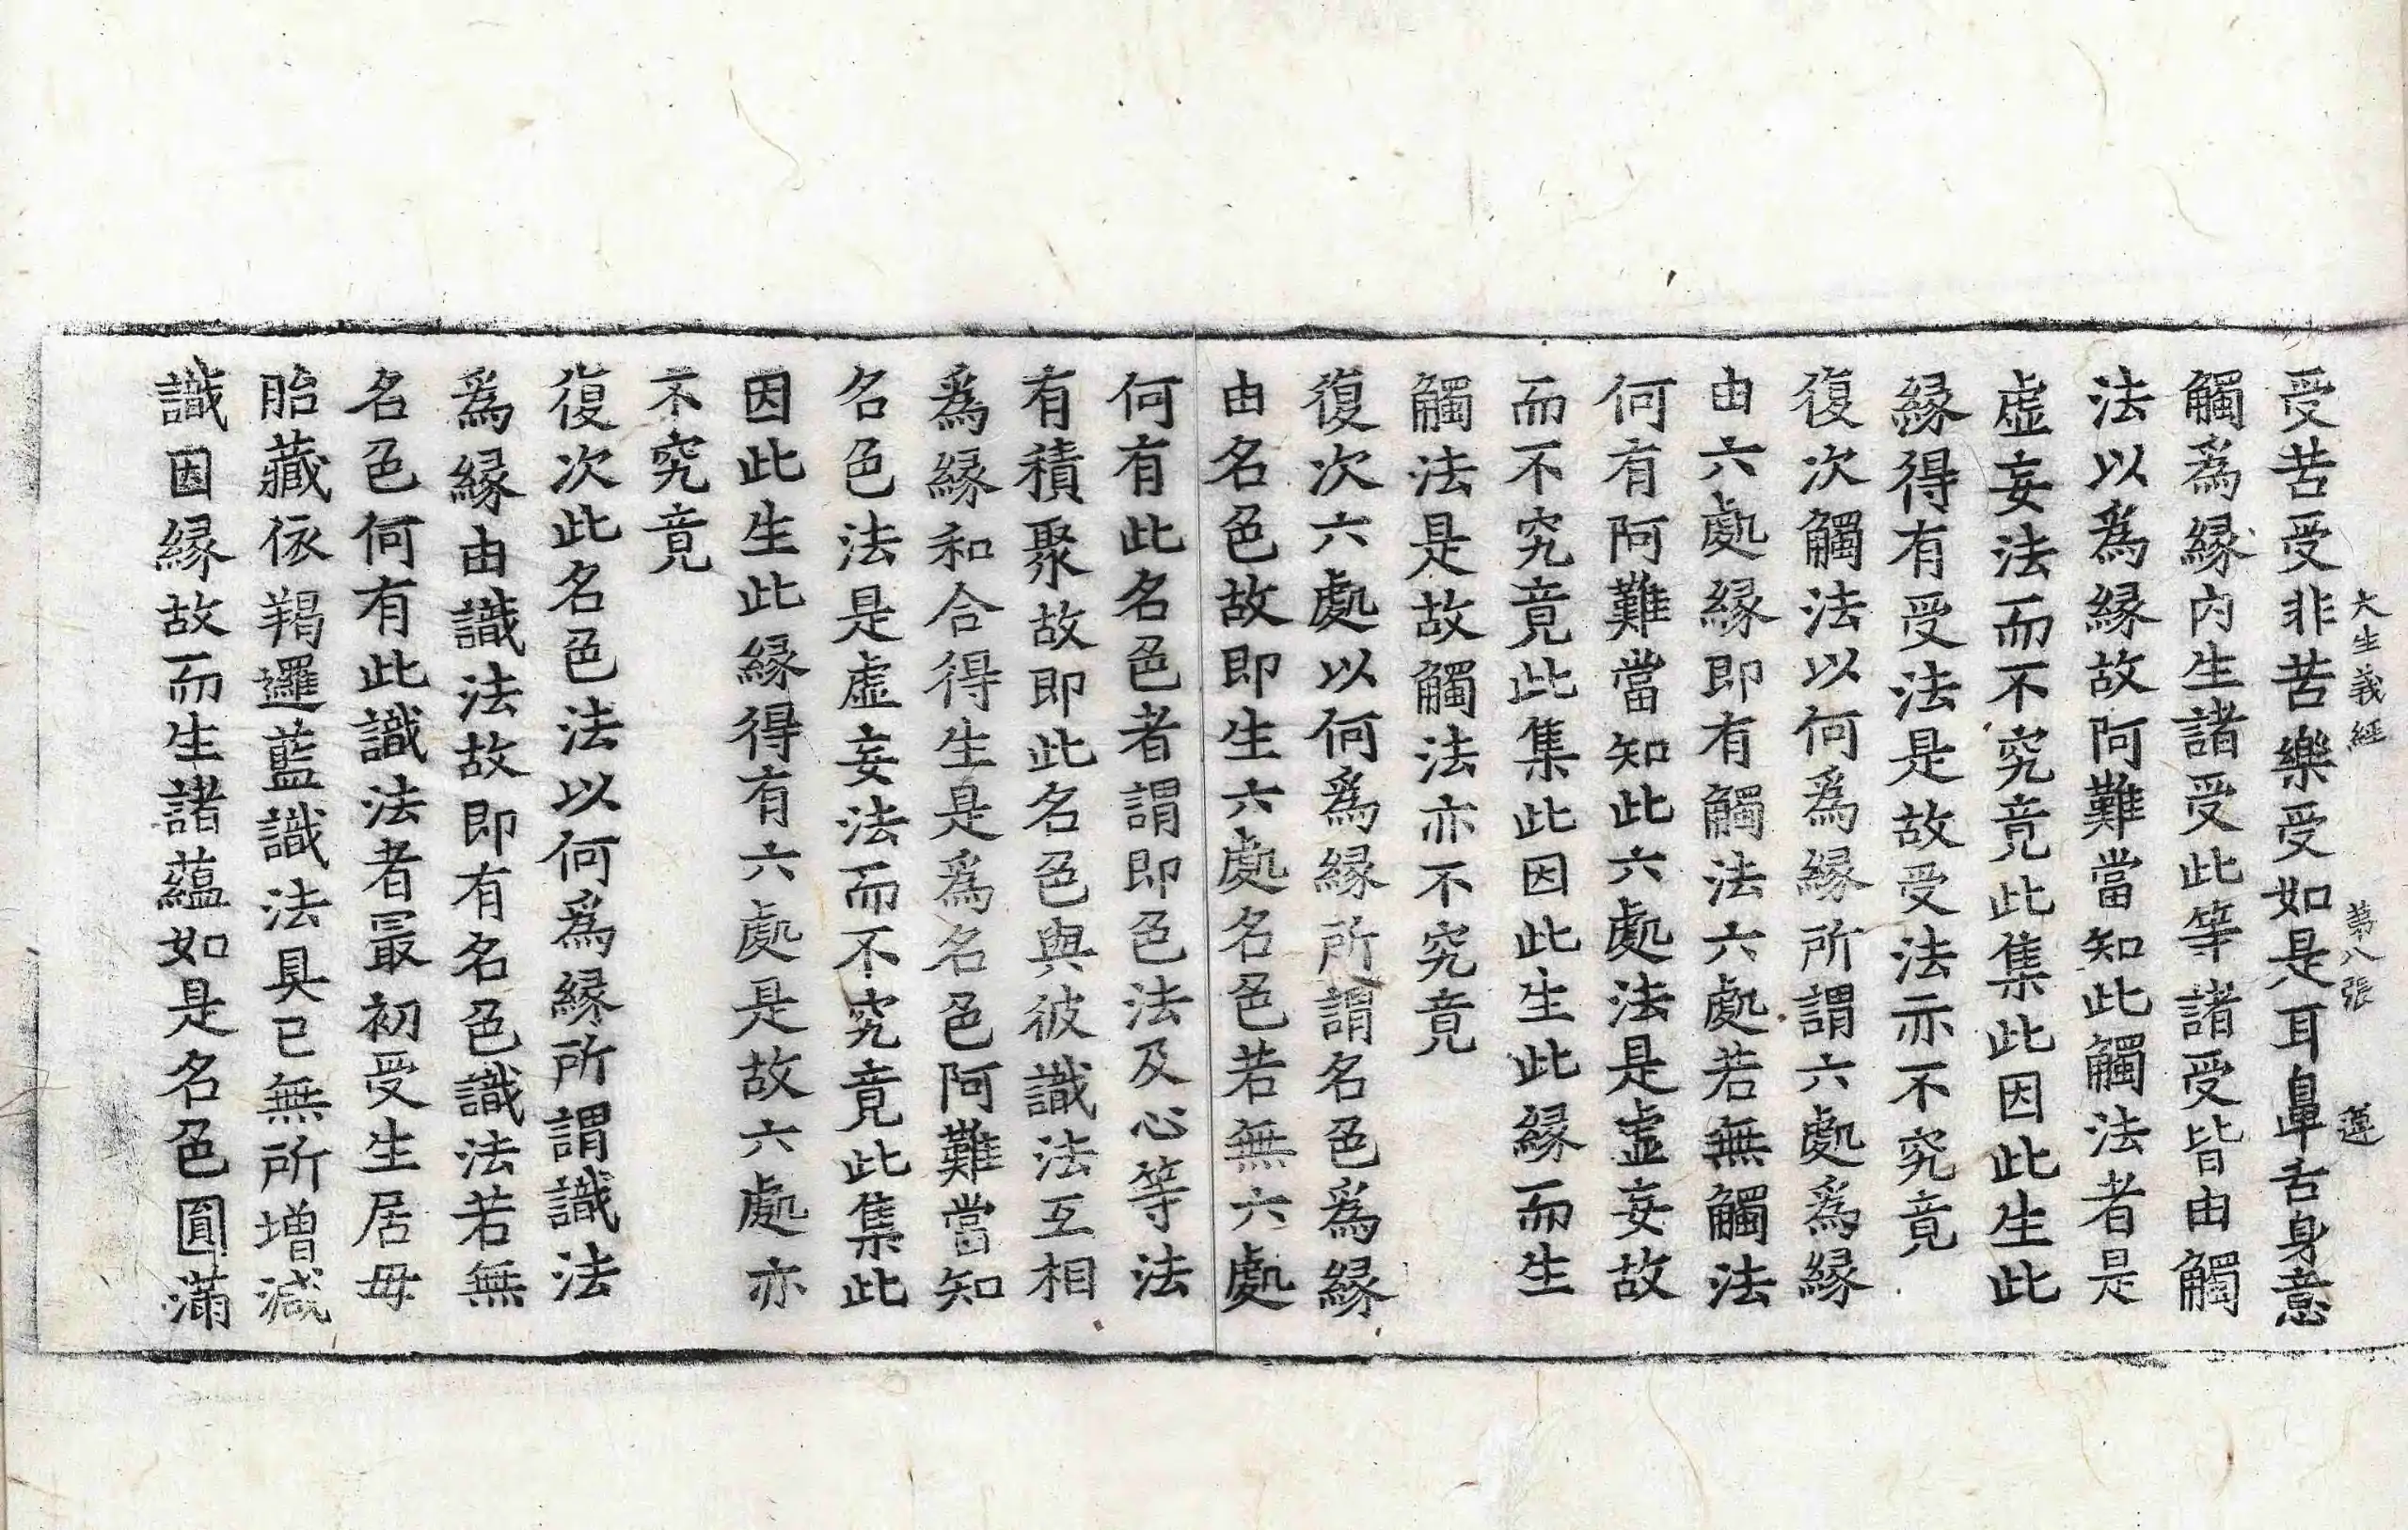 大生義經 第八張 蓮
受苦受非苦樂受如是耳鼻舌身意
觸爲緣內生諸受此等諸受皆由觸
法以爲緣故阿難當知此觸法者是
虛妄法而不究竟此集此因此生此
緣得有受法是故受法亦不究竟
復次觸法以何爲緣所謂六處爲緣
由六處緣即有觸法六處若無觸法
何有阿難當知此六處法是虛妄故
而不究竟此集此因此生此緣而生
觸法是故觸法亦不究竟
復次六處以何爲緣所謂名色爲緣
由名色故即生六處名色若無六處
何有此名色者謂即色法及心等法
有積聚故即此名色與彼識法互相
爲緣和合得生是爲名色阿難當知
名色法是虛妄法而不究竟此集此
因此生此緣得有六處是故六處亦
不究竟
復次此名色法以何爲緣所謂識法
爲緣由識法故即有名色識法若無
名色何有此識法者最初受生居母
胎藏依羯邏藍識法具已無所增減
識因緣故而生諸蘊如是名色圓滿